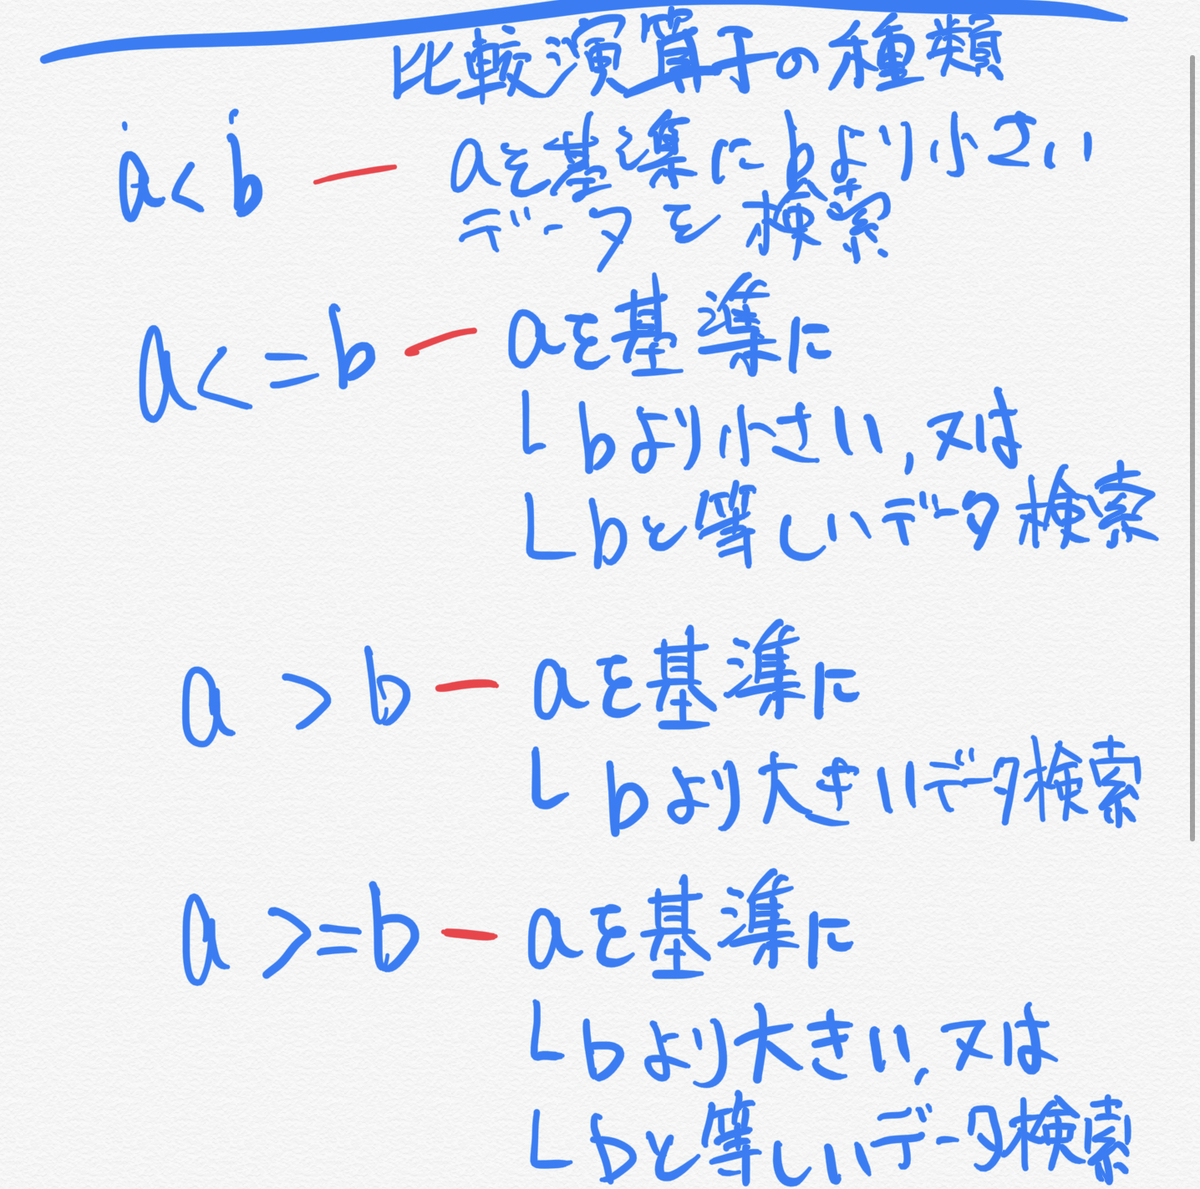 比較演算子の種類
a<b ― aを基準にbより小さい
データを検索
a<=b ― aを基準に
└bより小さい,又は
└bと等しいデータ検索
a>b ― aを基準に
└bより大きいデータ検索
a>=b ― aを基準に
└bより大きい,又は
└bと等しいデータ検索